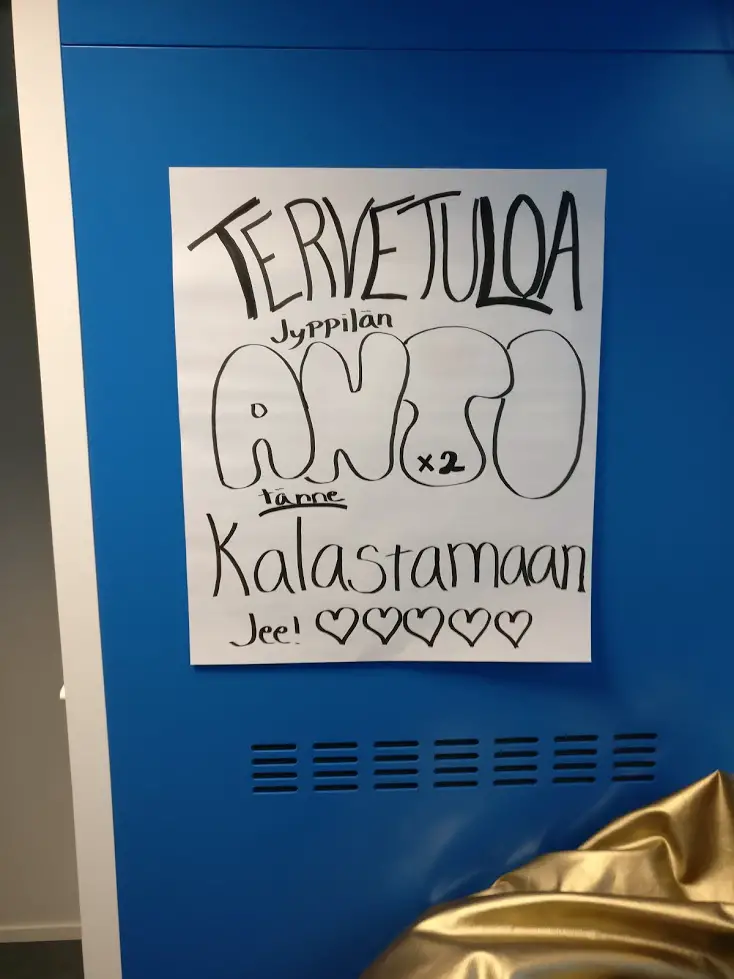 TERVETULOA
Jyppilän
ANTI
x2
tänne
Kalastamaan
Jee! ♡♡♡♡♡